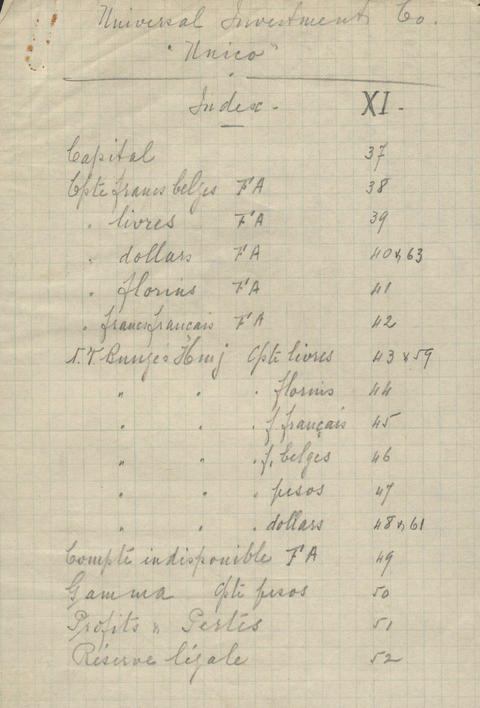 Universal Investment Co.
"Unico"
Index - XI -
Capital 37
Cpte francs belges FA 38
" livres FA 39
" dollars FA 40 & 63
" florins FA 41
" francs français FA 42
N.V. Bunge's Hmij Cpte livres 43 & 59
" " " florins 44
" " " f. français 45
" " " f. belges 46
" " " pesos 47
" " " dollars 48 & 61
Compte indisponible FA 49
Gamma Cpte pesos 50
Profits & Pertes 51
Réserve légale 52